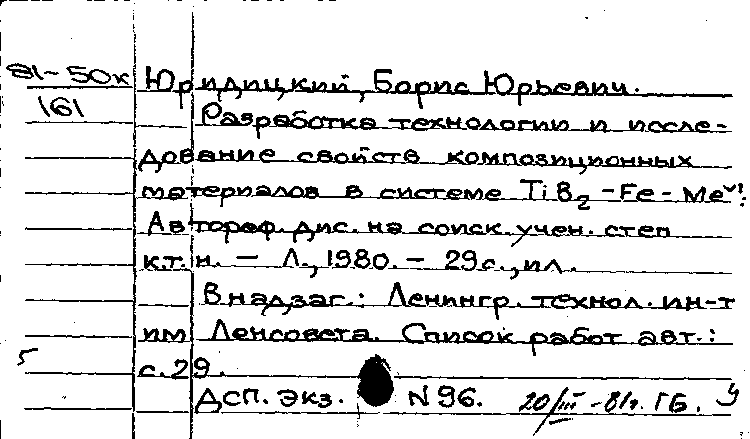 81-50к Юридицкий, Борис Юрьевич.
161 Разработка технологии и иссле-
дование свойств композиционных
материалов в системе TiB2-Fe-Me
Автореф. дис. на соиск. учен. степ
к.т.н. - Л., 1980. - 29с., ил.
В надзаг.: Ленингр. технол. ин-т
им Ленсовета. Список работ авт.:
с.29.
ДСП. Экз. N96. 20/III-81г. ГБ.